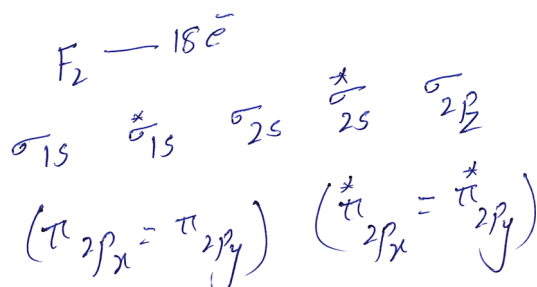 F₂ — 18 e⁻
σ1s σ*1s σ2s σ*2s σ2pz
(π2px = π2py) (π*2px = π*2py)